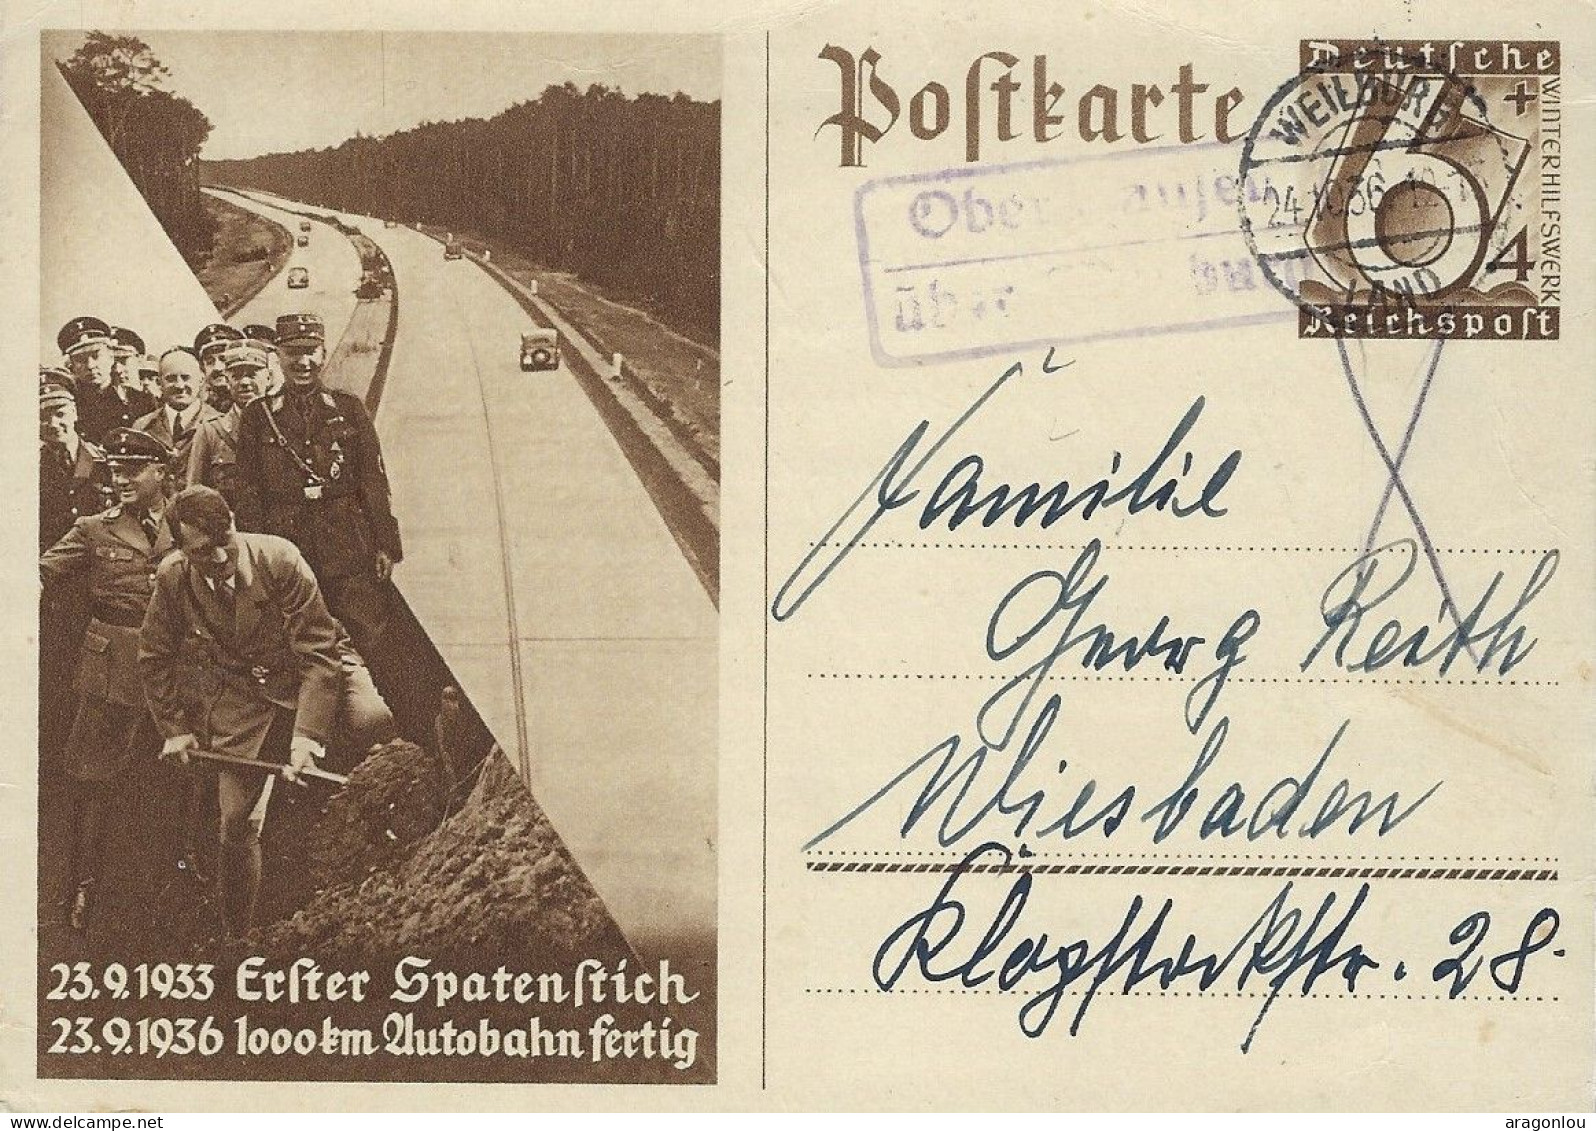 23.9.1933 Erster Spatenstich
23.9.1936 1000 km Autobahn fertig
Postkarte
Deutsche
Reichspost
WINTERHILFSWERK
6 + 4
WEILBURG
24.10.36
LAND
über
Familie
Georg Reith
Wiesbaden
Klopstockstr. 28.
aragonlou